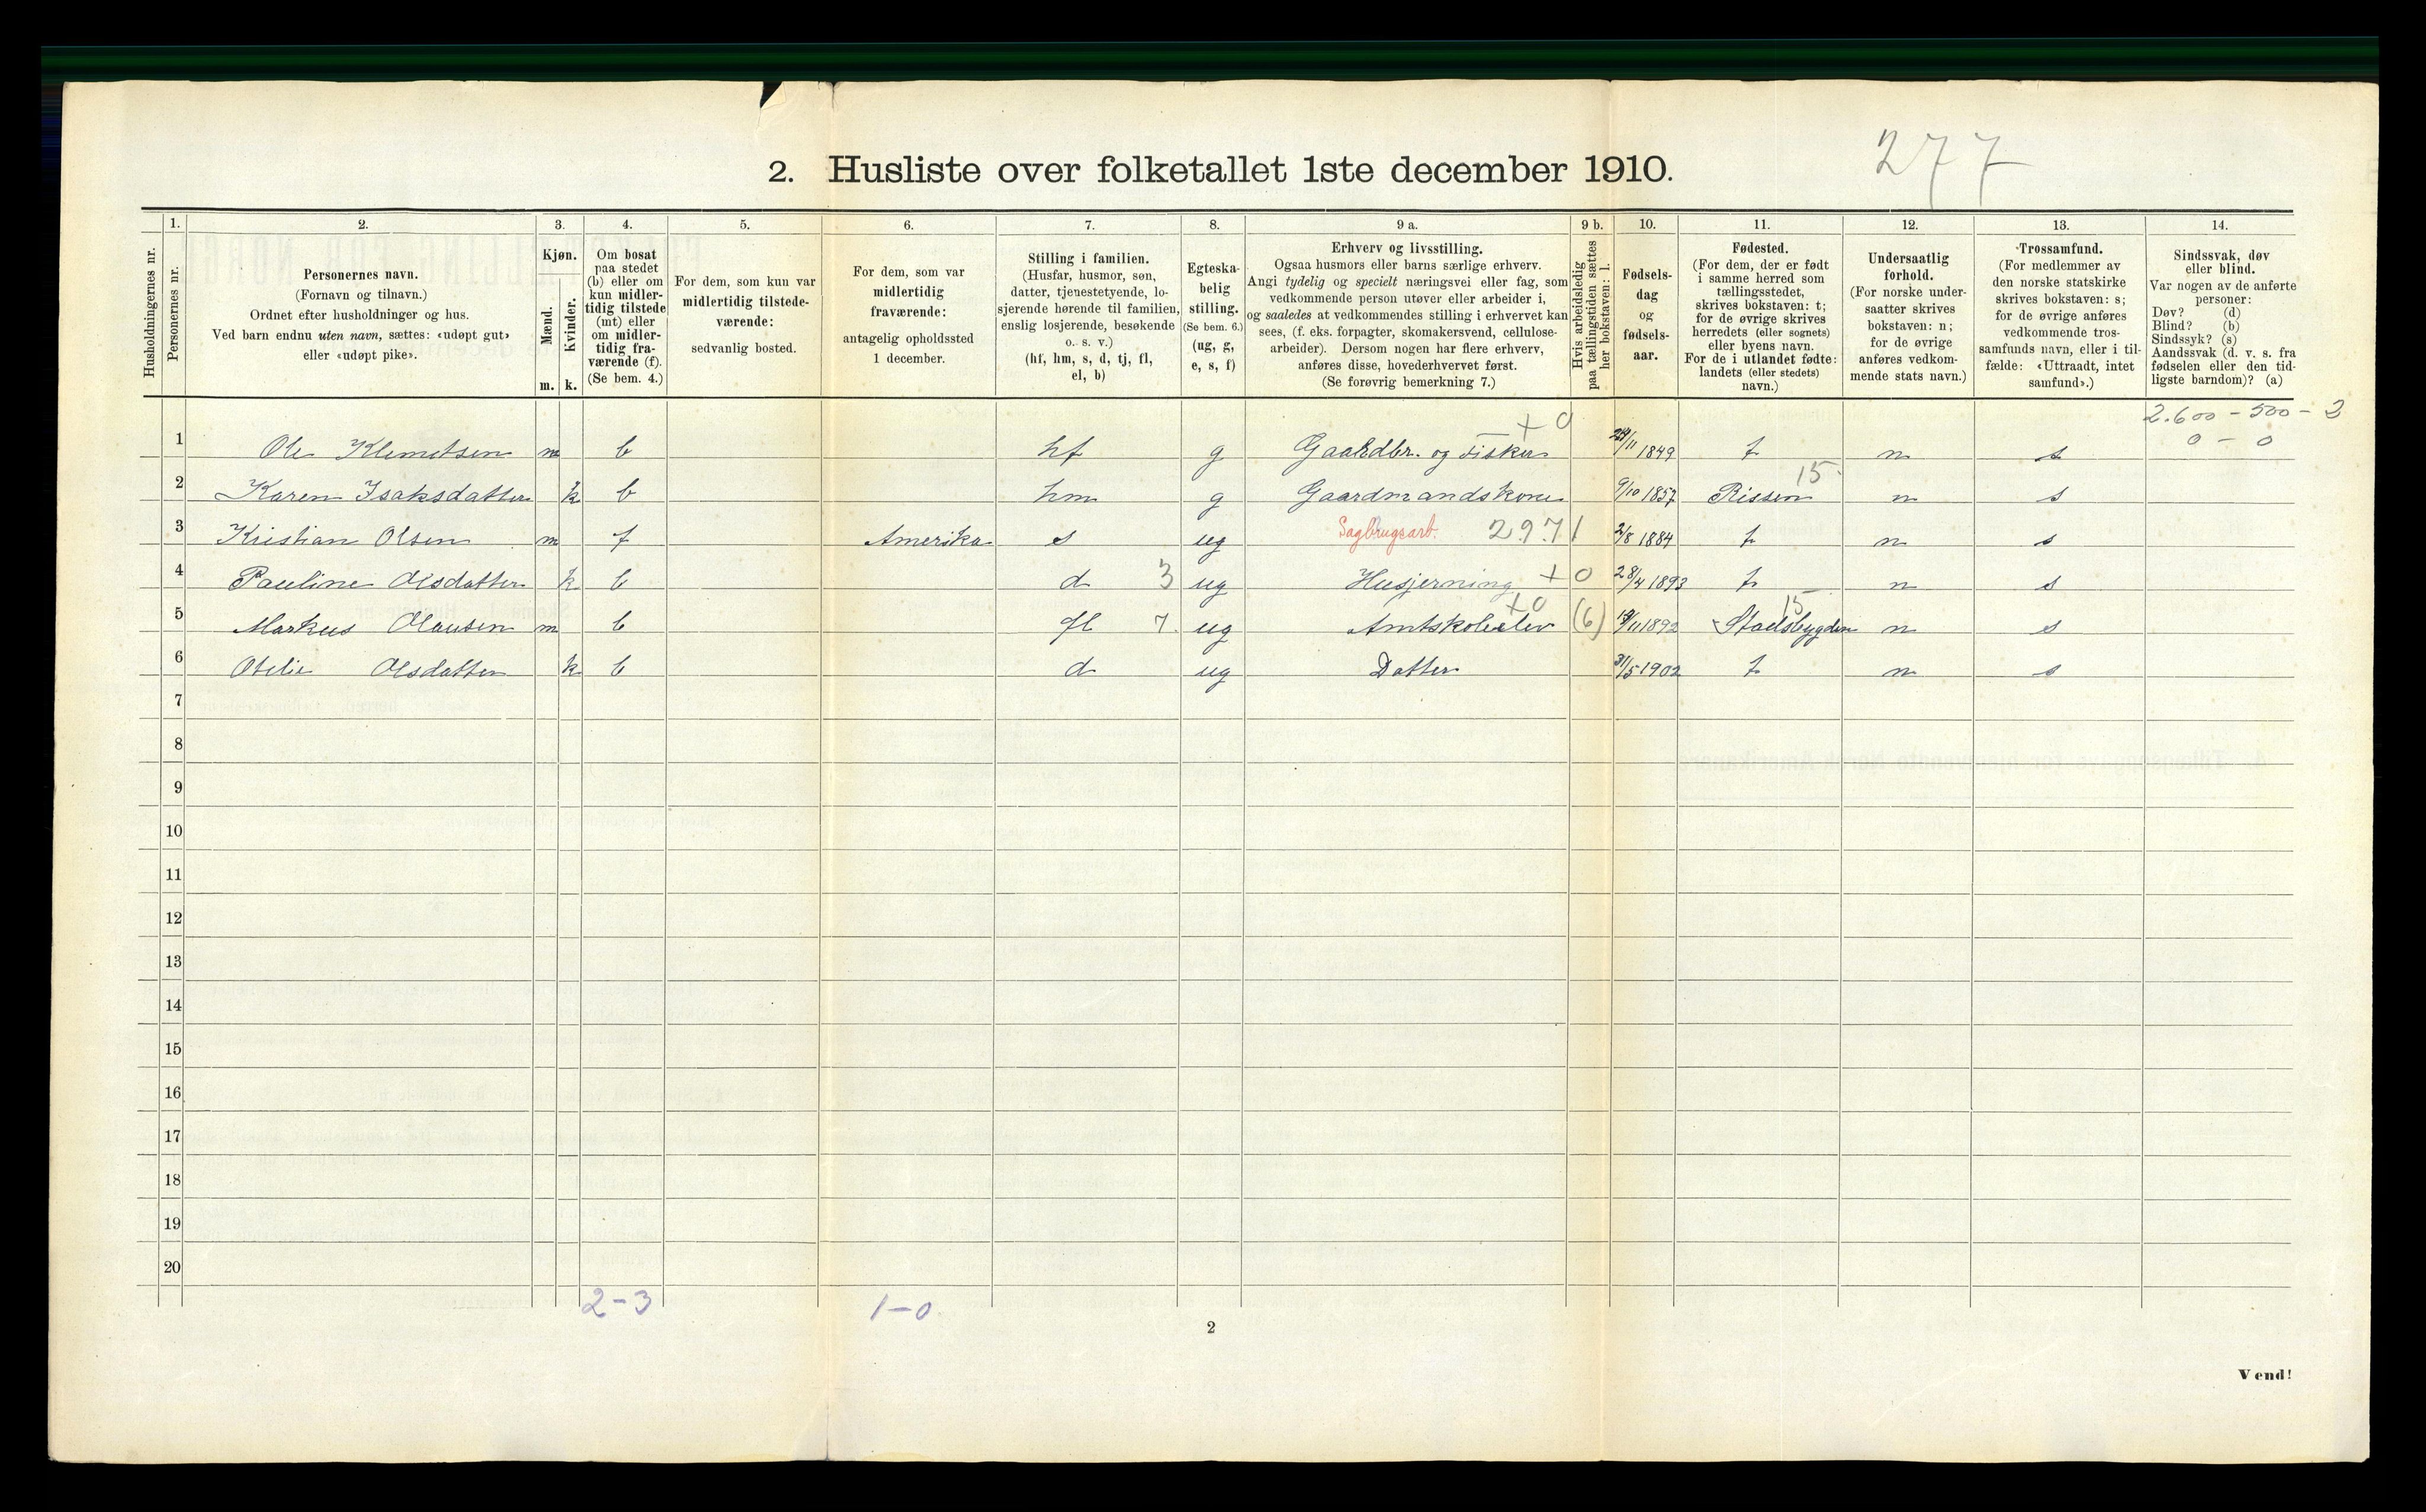 277
2. Husliste over folketallet 1ste december 1910.
Husholdningernes nr.
1.
Personernes nr.
2.
Personernes navn.
(Fornavn og tilnavn.)
Ordnet efter husholdninger og hus.
Ved barn endnu uten navn, sættes: «udøpt gut»
eller «udøpt pike».
3.
Kjøn.
Mænd.
Kvinder.
m. k.
4.
Om bosat
paa stedet
(b) eller om
kun midler-
tidig tilstede
(mt) eller
om midler-
tidig fra-
værende (f).
(Se bem. 4.)
5.
For dem, som kun var
midlertidig tilstede-
værende:
sedvanlig bosted.
6.
For dem, som var
midlertidig
fraværende:
antagelig opholdssted
1 december.
7.
Stilling i familien.
(Husfar, husmor, søn,
datter, tjenestetyende, lo-
sjerende hørende til familien,
enslig losjerende, besøkende
o. s. v.)
(hf, hm, s, d, tj, fl,
el, b)
8.
Egteska-
belig
stilling.
(Se bem. 6.)
(ug, g,
e, s, f)
9 a.
Erhverv og livsstilling.
Ogsaa husmors eller barns særlige erhverv.
Angi tydelig og specielt næringsvei eller fag, som
vedkommende person utøver eller arbeider i,
og saaledes at vedkommendes stilling i erhvervet kan
sees, (f. eks. forpagter, skomakersvend, cellulose-
arbeider). Dersom nogen har flere erhverv,
anføres disse, hovederhvervet først.
(Se forøvrig bemerkning 7.)
9 b.
Hvis arbeidsledig
paa tællingstiden sættes
her bokstaven: l.
10.
Fødsels-
dag
og
fødsels-
aar.
11.
Fødested.
(For dem, der er født
i samme herred som
tællingsstedet,
skrives bokstaven: t;
for de øvrige skrives
herredets (eller sognets)
eller byens navn.
For de i utlandet fødte:
landets (eller stedets)
navn.)
12.
Undersaatlig
forhold.
(For norske under-
saatter skrives
bokstaven: n;
for de øvrige
anføres vedkom-
mende stats navn.)
13.
Trossamfund.
(For medlemmer av
den norske statskirke
skrives bokstaven: s;
for de øvrige anføres
vedkommende tros-
samfunds navn, eller i til-
fælde: «Uttraadt, intet
samfund».)
14.
Sindssvak, døv
eller blind.
Var nogen av de anførte
personer:
Døv? (d)
Blind? (b)
Sindssyk? (s)
Aandssvak (d. v. s. fra
fødselen eller den tid-
ligste barndom)? (a)
+ 0 2.600 - 500 - 2
1 Ole Klemetsen m b hf g Gaardbr. og Fisker 24/11 1849 t n s 0 - 0
15
2 Karen Isaksdatter k b hm g Gaardmandskone 9/10 1857 Rissen n s
3 Kristian Olsen m f Amerika s ug Sagbrugsarb. 2971 2/8 1884 t n s
4 Pauline Olsdatter k b d 3 ug Husjerning + 0 28/4 1893 t n s
+0 15
5 Markus Olausen m b fl 7. ug Amtskoleelev (6) /11 1892 Stadsbygden n s
6 Otelie Olsdatter k b d ug Datter 31/5 1902 t n s
7
8
9
10
11
12
13
14
15
16
17
18
19
20
2-3 1-0
2
Vend!